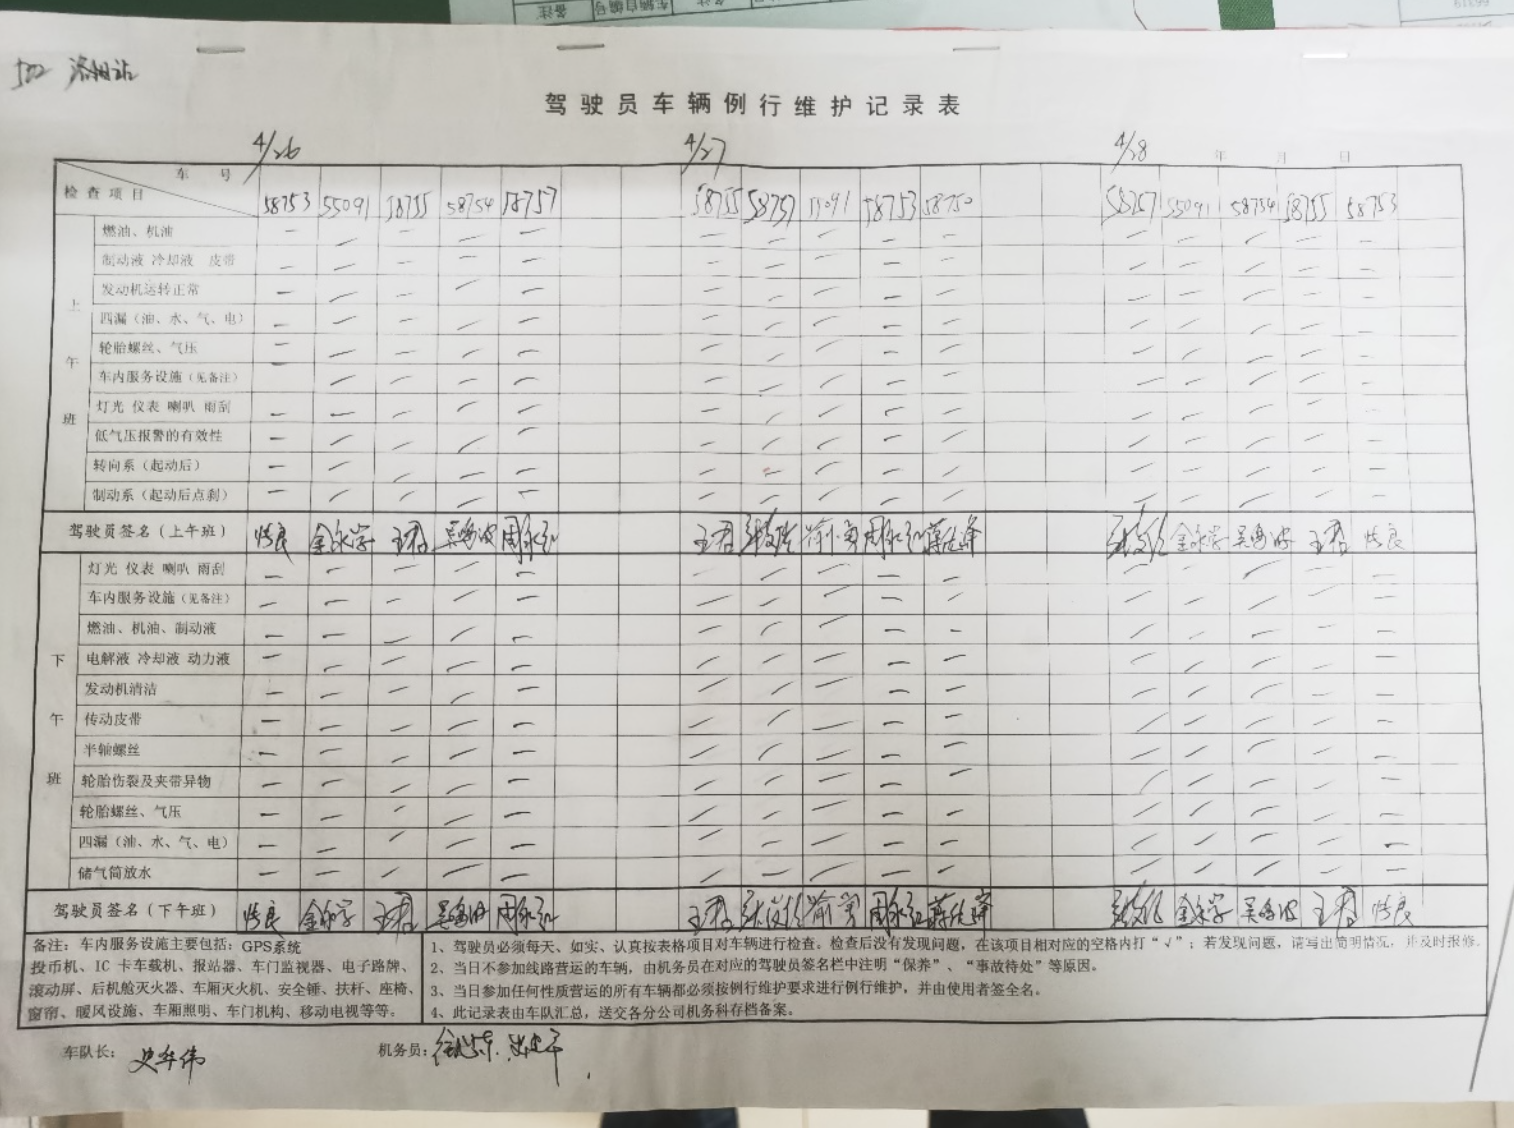 502
驾驶员车辆例行维护记录表
4/26 4/27 4/28 年 月 日
车 号
检查项目
58753 55091 58755 58754 58757 58755 58757 55091 58753 58750 58757 55091 58754 58755 58753
上午班
燃油、机油
制动液 冷却液 皮带
发动机运转正常
四漏（油、水、气、电）
轮胎螺丝、气压
车内服务设施（见备注）
灯光 仪表 喇叭 雨刮
低气压报警的有效性
转向系（起动后）
制动系（起动后点刹）
驾驶员签名（上午班） 金永学 王君 吴鸣波 周永红 王君 周永红 金永学 吴鸣波 王君
下午班
灯光 仪表 喇叭 雨刮
车内服务设施（见备注）
燃油、机油、制动液
电解液 冷却液 动力液
发动机清洁
传动皮带
半轴螺丝
轮胎伤裂及夹带异物
轮胎螺丝、气压
四漏（油、水、气、电）
储气筒放水
驾驶员签名（下午班） 金永学 王君 吴鸣波 周永红 王君 周永红 金永学 吴鸣波 王君
备注：车内服务设施主要包括：GPS系统
投币机、IC 卡车载机、报站器、车门监视器、电子路牌、
滚动屏、后机舱灭火器、车厢灭火机、安全锤、扶杆、座椅、
窗帘、暖风设施、车厢照明、车门机构、移动电视等等。
1、驾驶员必须每天、如实、认真按表格项目对车辆进行检查。检查后没有发现问题，在该项目相对应的空格内打“√”；若发现问题，请写出简明情况，并及时报修。
2、当日不参加线路营运的车辆，由机务员在对应的驾驶员签名栏中注明“保养”、“事故待处”等原因。
3、当日参加任何性质营运的所有车辆都必须按例行维护要求进行例行维护，并由使用者签全名。
4、此记录表由车队汇总，送交各分公司机务科存档备案。
车队长： 史华伟
机务员：